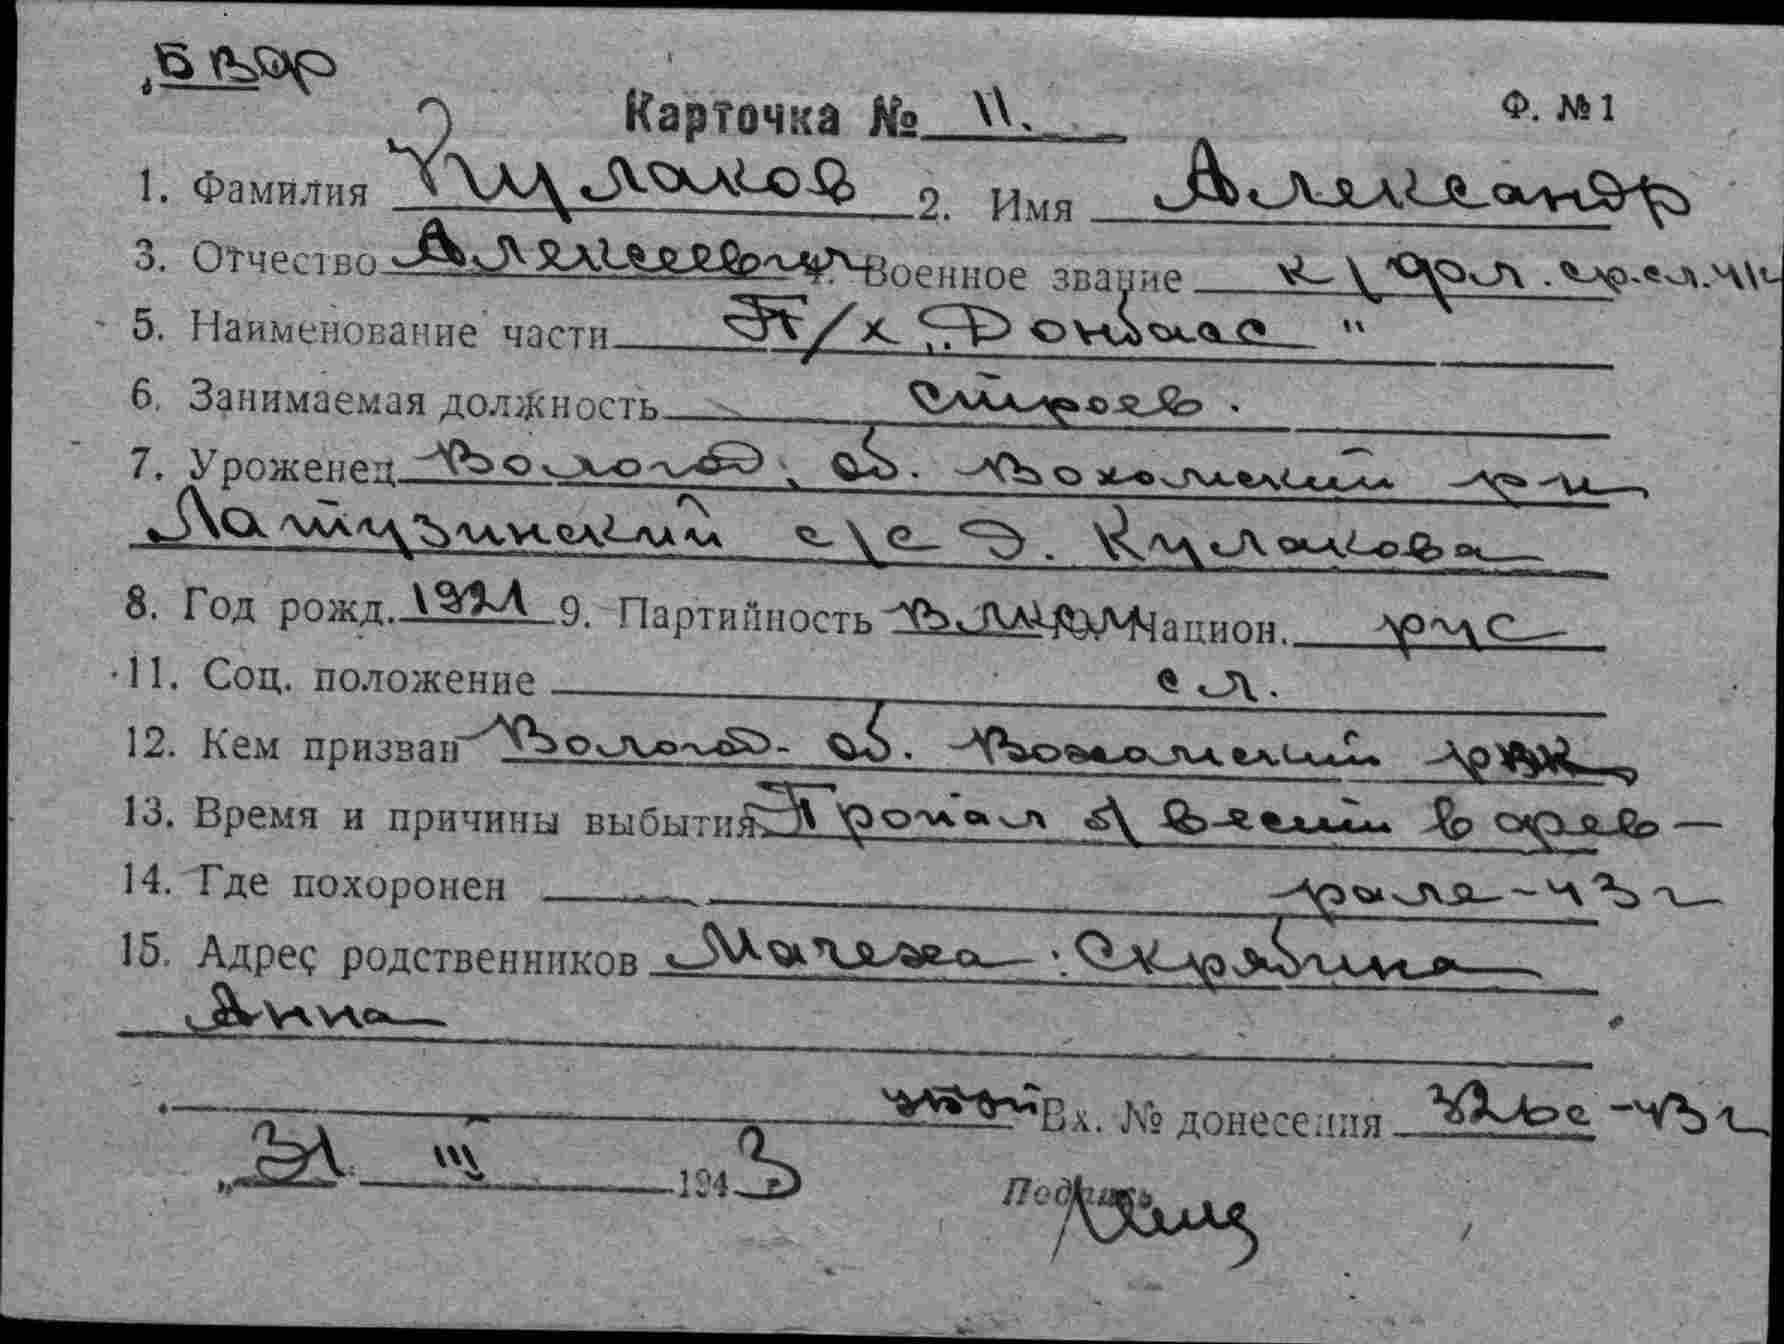 Карточка № 11. Ф. № 1
1. Фамилия Кулаков 2. Имя Александр
3. Отчество Алексеевич 4. Военное звание к/фл. ср.сл.
5. Наименование части П/х „Донбасс"
6. Занимаемая должность строев.
7. Уроженец Вологод. об. Вохомский р-н
Латузинский с/с д. Кулакова
8. Год рожд. 1921 9. Партийность ВЛКСМ Национ. рус
11. Соц. положение сл.
12. Кем призван Вологод. об. Вохомский РВК
13. Время и причины выбытия Пропал б/вести в фев-
14. Где похоронен рале-43 г
15. Адрес родственников Мачеха: Скрябина
Анна
Вх. № донесения 326с-43 г
„31 III 1943
Подпись